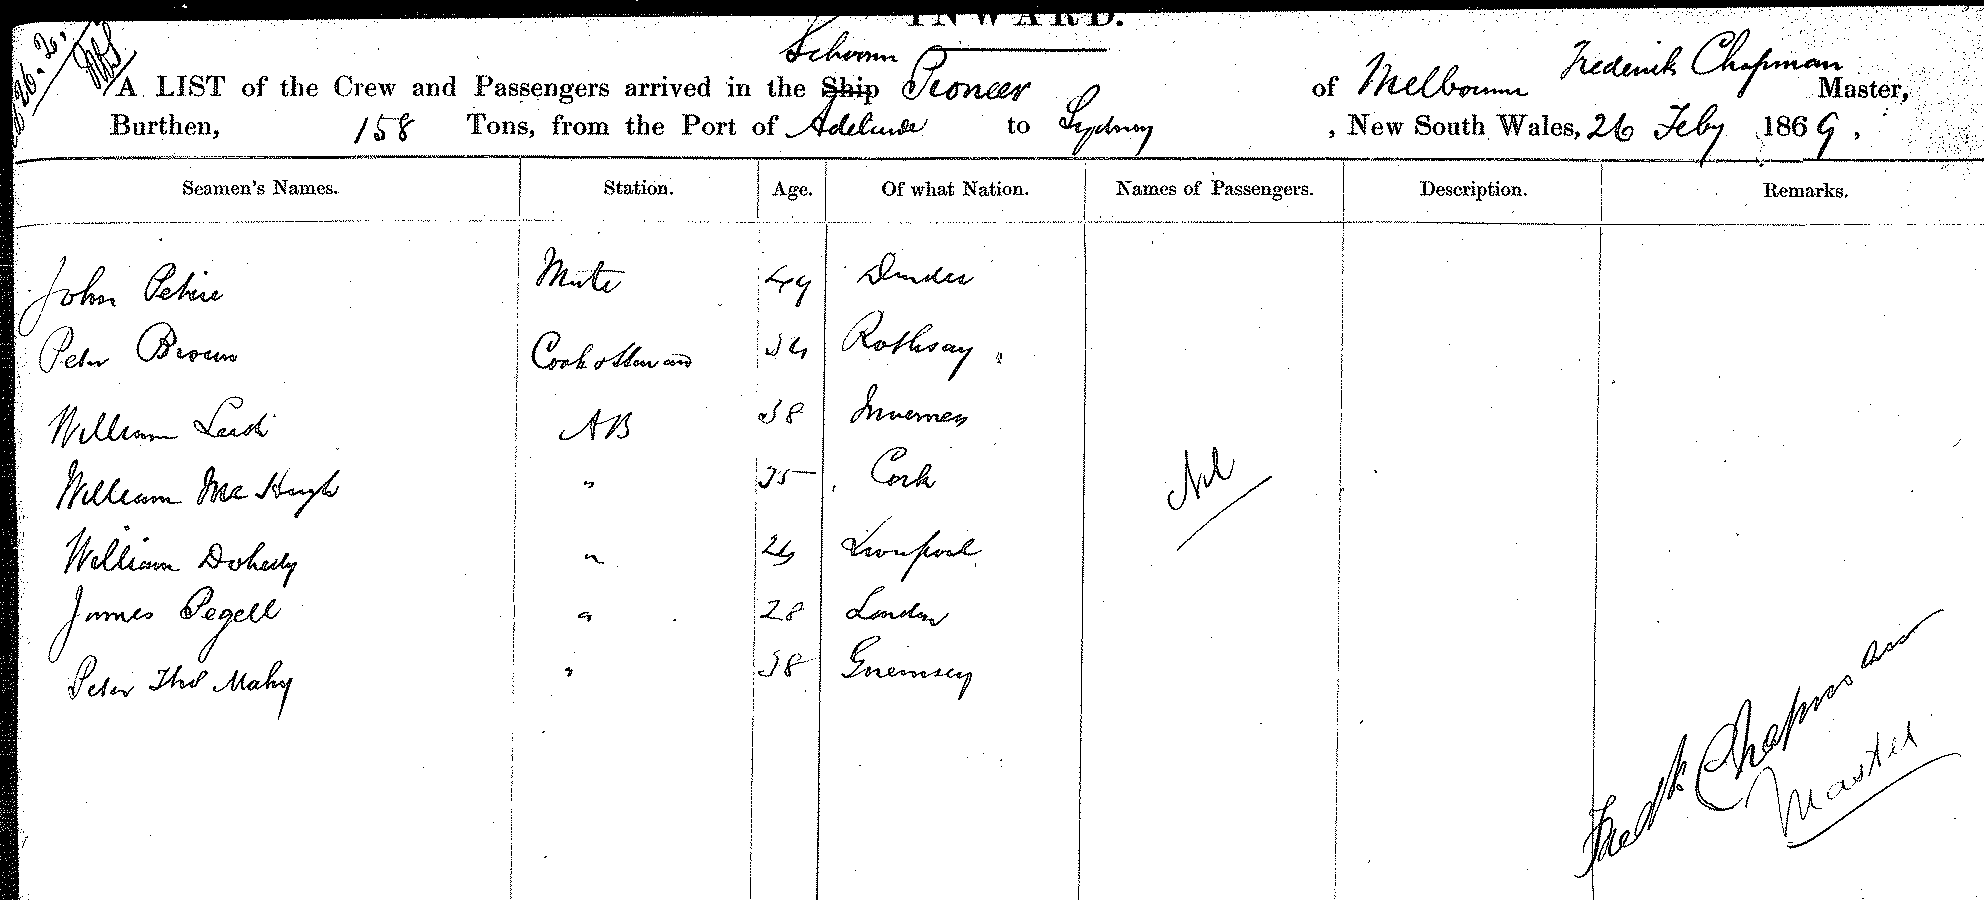 INWARD.
26.2.
Schooner
A LIST of the Crew and Passengers arrived in the Ship Pioneer of Melbourne Frederick Chapman Master,
Burthen, 158 Tons, from the Port of Adelaide to Sydney, New South Wales, 26 Feby 1869.
Seamen's Names. Station. Age. Of what Nation. Names of Passengers. Description. Remarks.
John Petrie Mate 49 Dundee
Peter Brown Cook & Steward 34 Rothsay
William Leith AB 38 Inverness
William McHugh " 35 Cork Nil
William Doherty " 24 Liverpool
James Pegell " 28 London
Peter Thos Mahy " 38 Guernsey
Fredk Chapman
Master